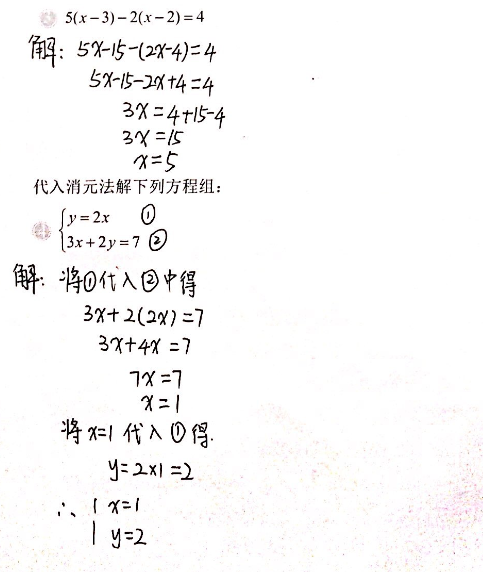 5(x-3)-2(x-2)=4
解：5x-15-(2x-4)=4
5x-15-2x+4=4
3x=4+15-4
3x=15
x=5
代入消元法解下列方程组：
y=2x ①
3x+2y=7 ②
解：将①代入②中得
3x+2(2x)=7
3x+4x=7
7x=7
x=1
将x=1代入①得.
y=2×1=2
∴ { x=1
y=2